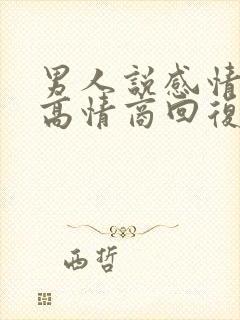 男人說感情
高情商回復
西哲